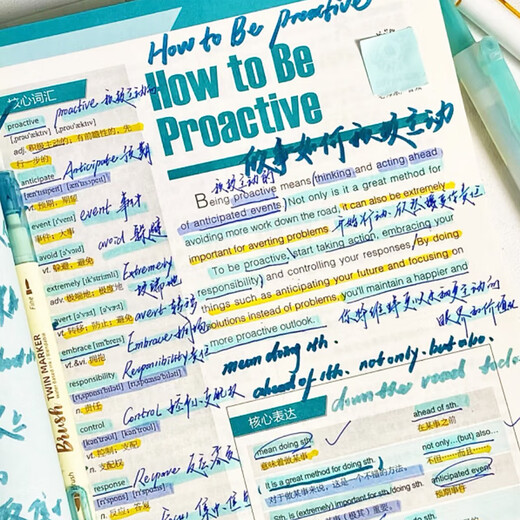 How to Be Proactive
How to Be
Proactive
做事如何积极主动
核心词汇
proactive 积极主动的
proactive
[ˌprəʊˈæktɪv]
adj. 积极主动的，有前瞻性的，先
行一步的
Anticipate
anticipate
[ænˈtɪsɪpeɪt]
vt. 预期；期望
event 事件
event [ɪˈvent]
n. 事件；大事
avoid 躲避
avoid [əˈvɔɪd]
vt. 躲避，避免
Extremely
extremely [ɪkˈstriːmli]
adv. 极端地；极度地
极端地
avert 转移
avert [əˈvɜːt]
vt. 转移；防止；避免
Embrace 拥抱
embrace [ɪmˈbreɪs]
vt.&vi. 拥抱
Responsibility 责任
responsibility
[rɪˌspɒnsəˈbɪləti]
n. 责任
control
[kənˈtrəʊl]
Control 控制；支配权
n. 控制；支配
vt. 支配权
Response 反应；答复
response
[rɪˈspɒns]
n. 反应；答复
积极主动的
Being proactive means thinking and acting ahead
of anticipated events. Not only is it a great method for
avoiding more work down the road, it can also be extremely
important for averting problems.
To be proactive, start taking action, embracing your
responsibility, and controlling your responses. By doing
things such as anticipating your future and focusing on
solutions instead of problems, you'll maintain a happier and
more proactive outlook.
mean doing sth.
ahead of sth. not only. but also.
down the road
核心表达
mean doing sth.
意味着做某事
ahead of sth.
在某事之前
it is a great method for doing sth.
对于做某事来说，这是一个不错的方法。
not only…(but) also…
不但……而且……
anticipated event
预期事件
Sth. is (extremely) important for sth./doing sth.
Brush TWIN MARKER
Fine